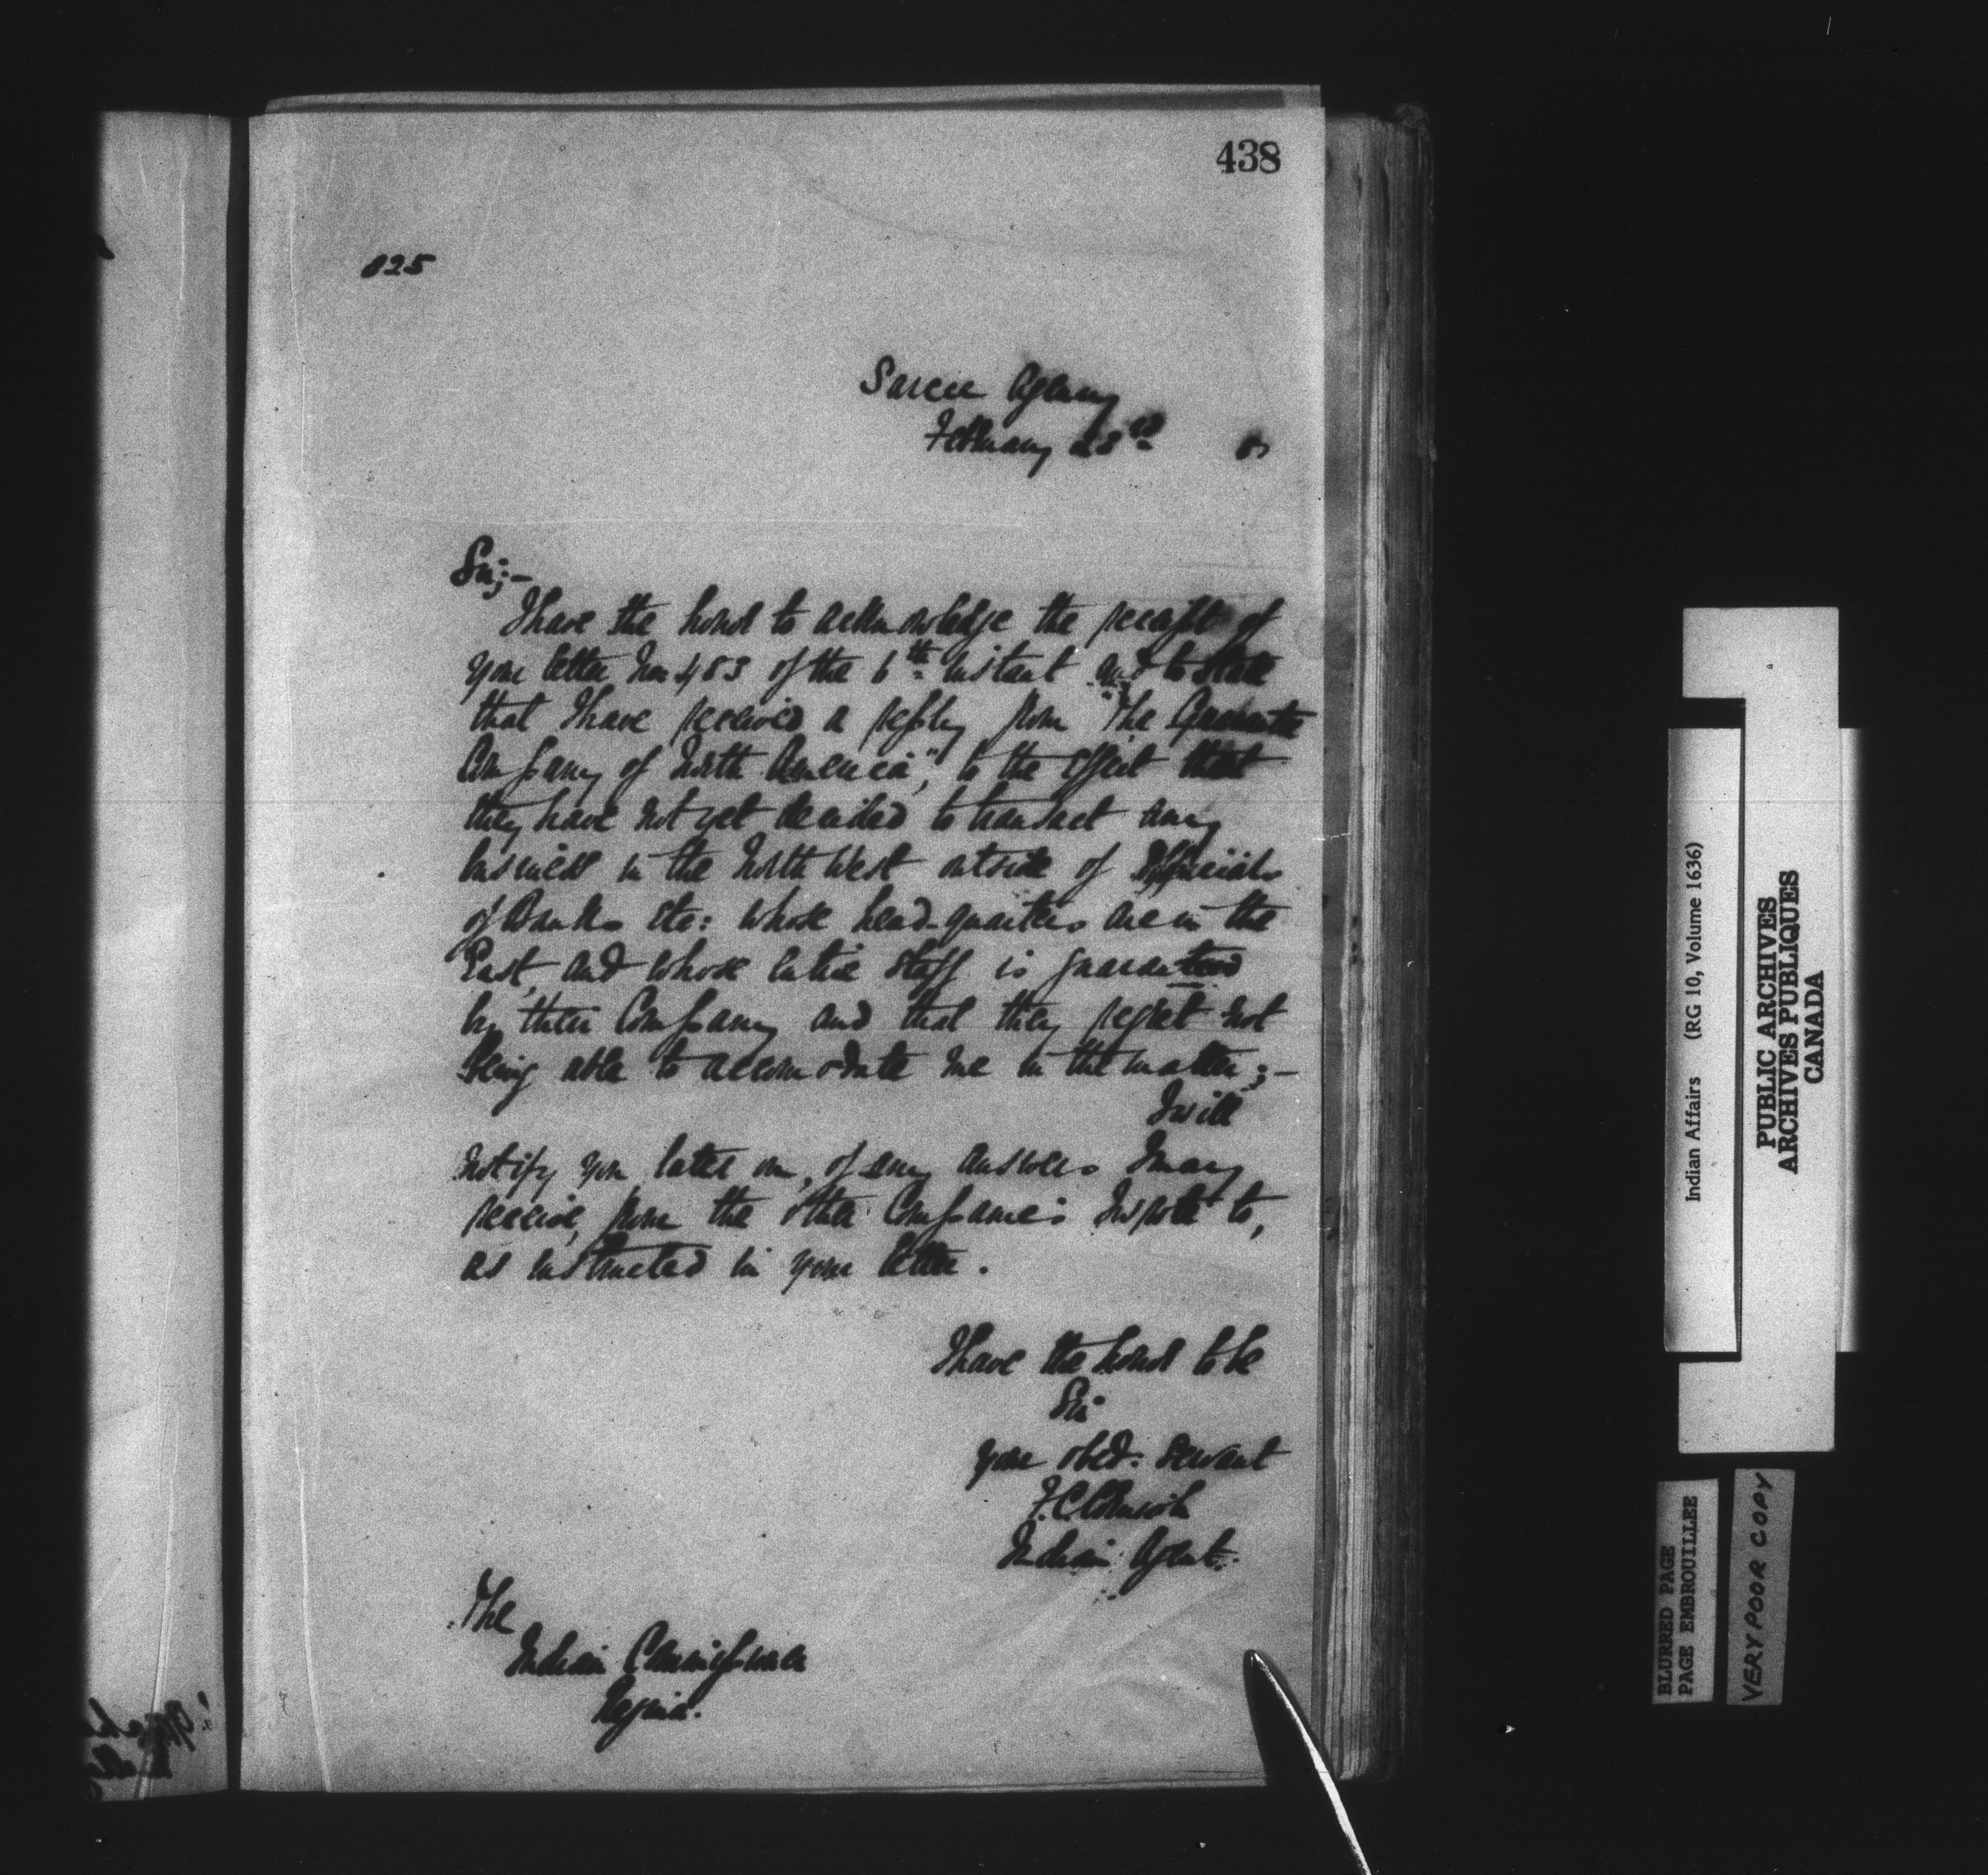 438
825
Sarcee Agency
February 23rd
Sir;-
I have the honor to acknowledge the receipt of
your letter No 483 of the 6th instant and to state
that I have received a reply from "The Guarantee
Company of North America", to the effect that
they have not yet decided to transact any
business in the North West outside of Officials
of Banks etc: whose head-quarters are in the
East, and whose entire staff is guaranteed
by their Company and that they regret not
being able to accomodate me in the matter;-
I will
notify you later on, of any answers I may
receive, from the other Companies I wrote to,
as instructed in your letter.
I have the honor to be
Sir
your obed: servant
F.C. Cornish
Indian Agent.
The
Indian Commissioner
Regina.
Indian Affairs (RG 10, Volume 1636)
PUBLIC ARCHIVES
ARCHIVES PUBLIQUES
CANADA
BLURRED PAGE
PAGE EMBROUILLEE
VERY POOR COPY